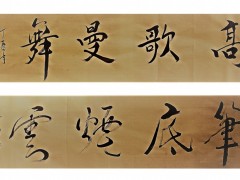 高歌曼舞
筆底煙雲